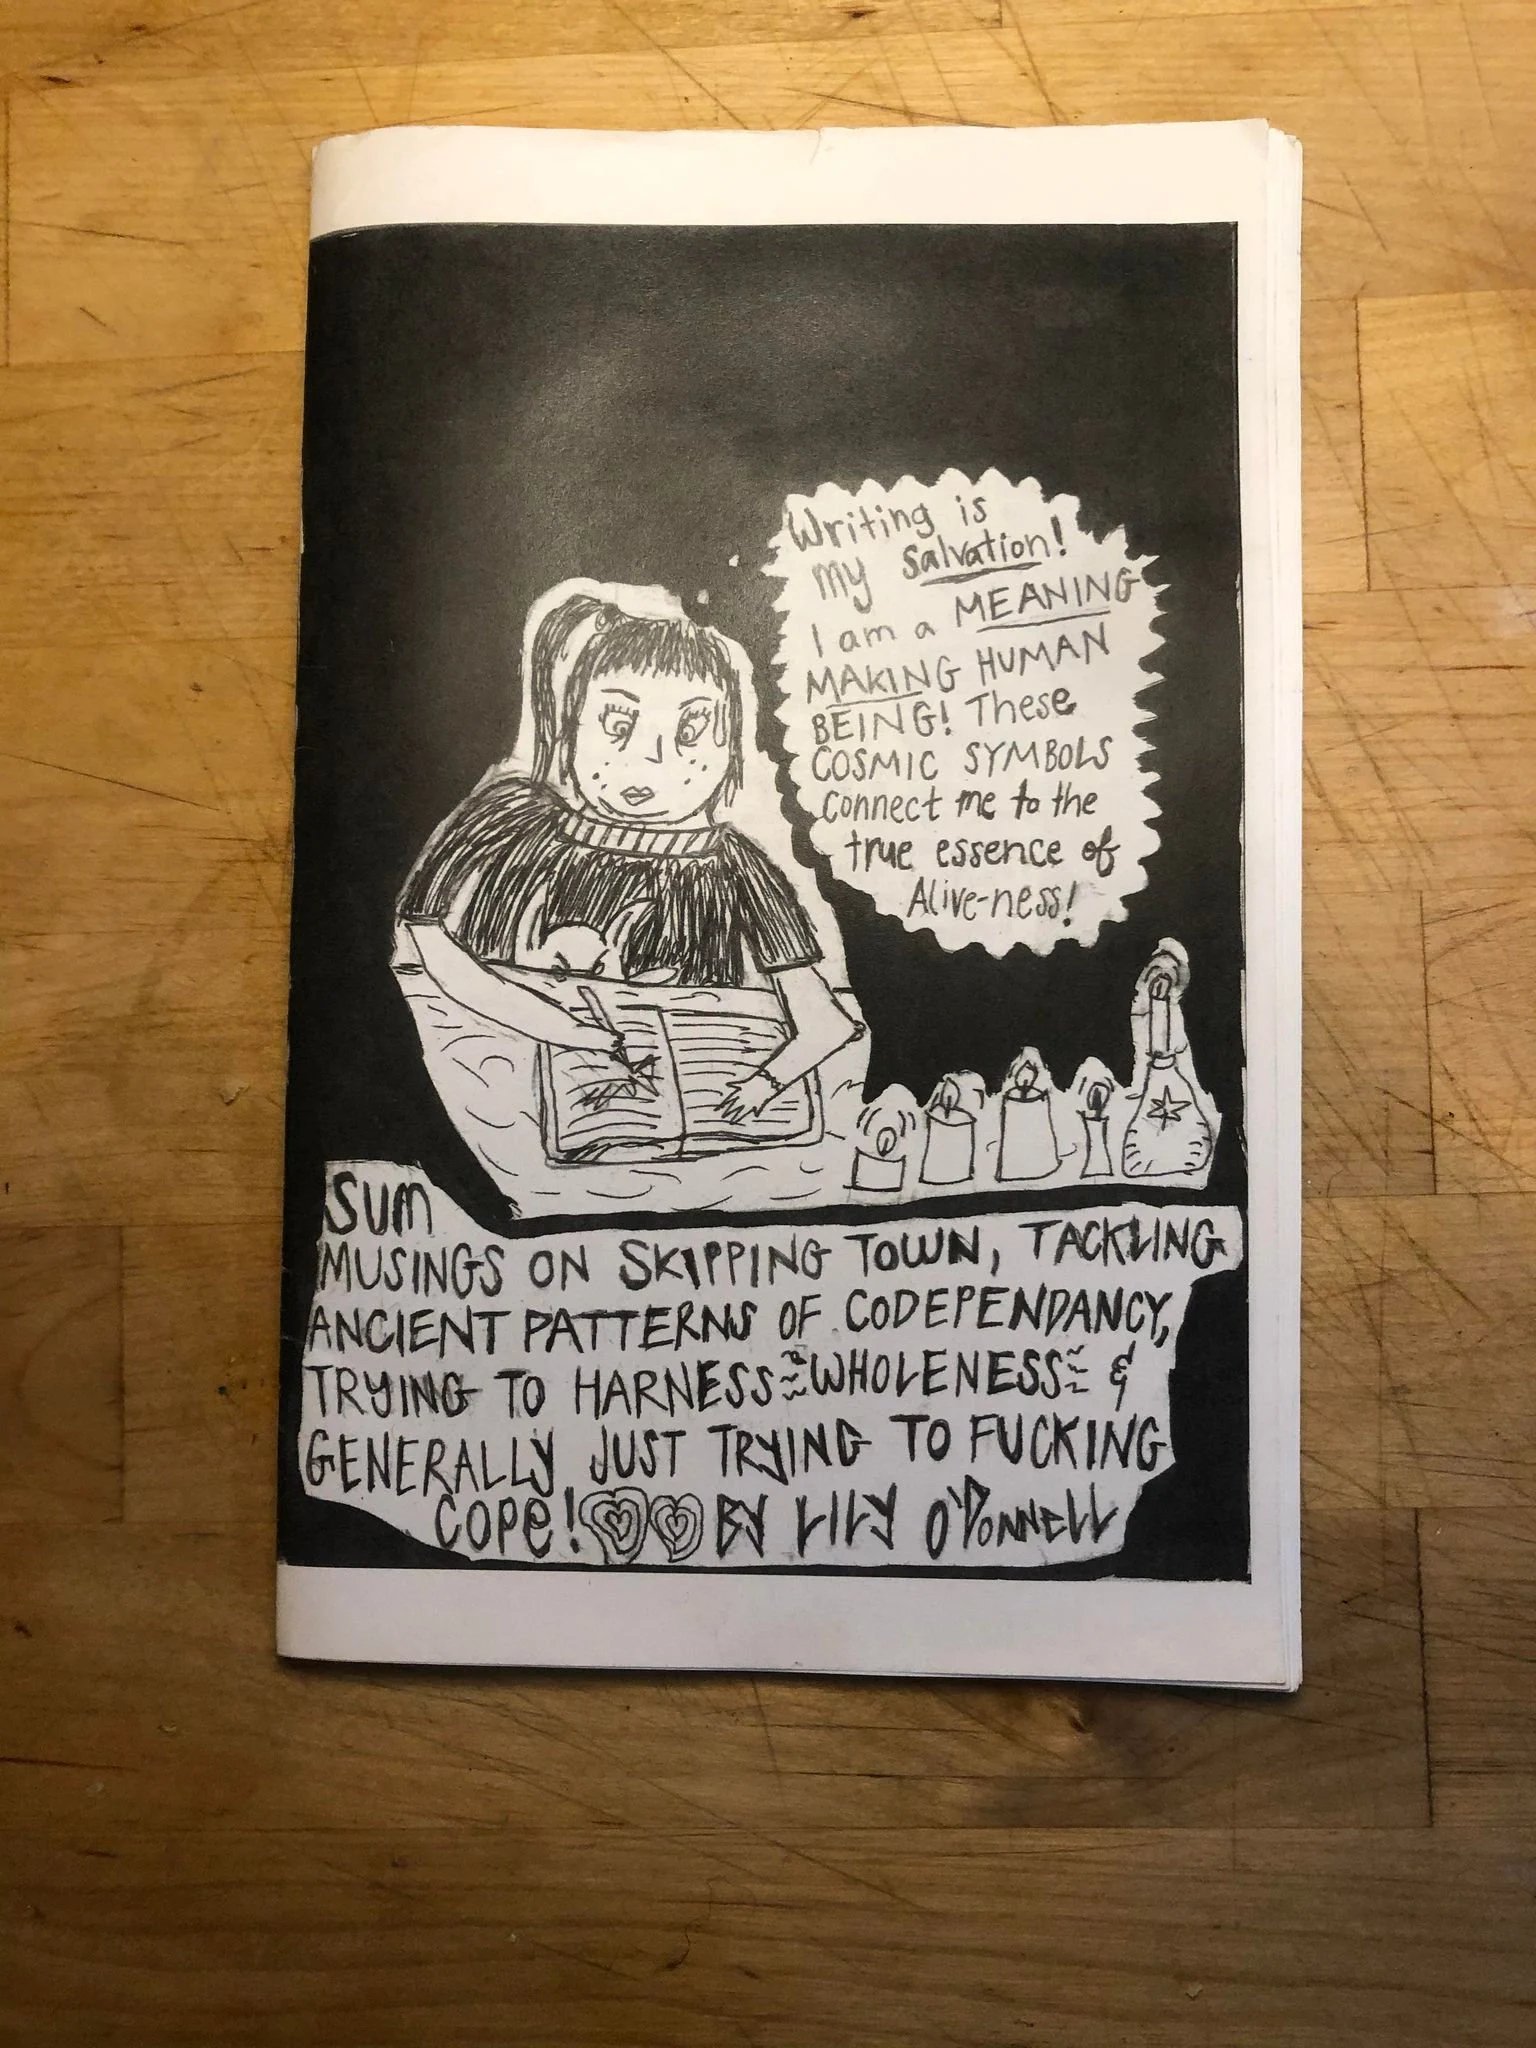 Writing is
my salvation!
I am a MEANING
MAKING HUMAN
BEING! These
COSMIC SYMBOLS
connect me to the
true essence of
Alive-ness!
SUM
MUSINGS ON SKIPPING TOWN, TACKLING
ANCIENT PATTERNS OF CODEPENDANCY,
TRYING TO HARNESS ≈WHOLENESS≈ &
GENERALLY JUST TRYING TO FUCKING
COPE! BY LILY O'DONNELL